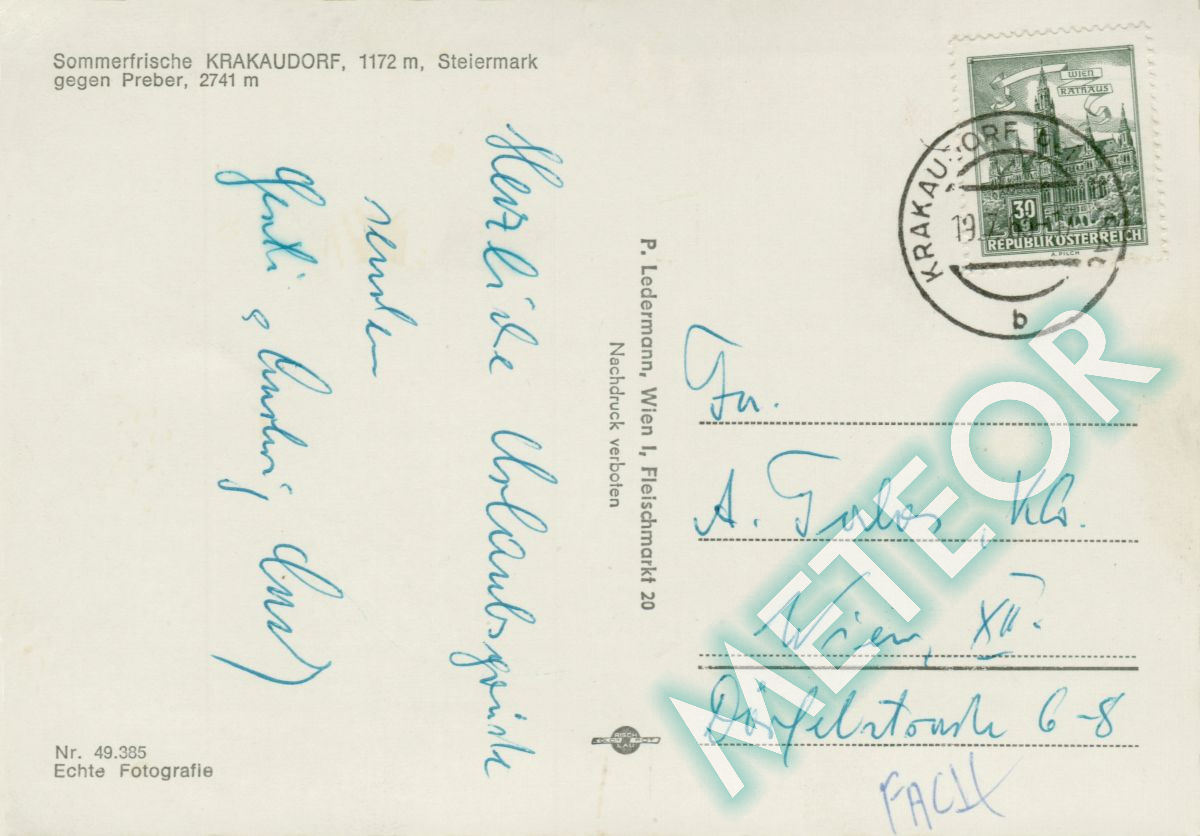 Sommerfrische KRAKAUDORF, 1172 m, Steiermark
gegen Preber, 2741 m
WIEN
RATHAUS
30
REPUBLIK ÖSTERREICH
A. PILCH
KRAKAUDORF
19.
b
Herzliche Urlaubsgrüße
senden
P. Ledermann, Wien I, Fleischmarkt 20
Nachdruck verboten
A.
Wien, XII.
Dörfelstraße 6-8
FACH
METEOR
RISCH
LAU
Nr. 49.385
Echte Fotografie